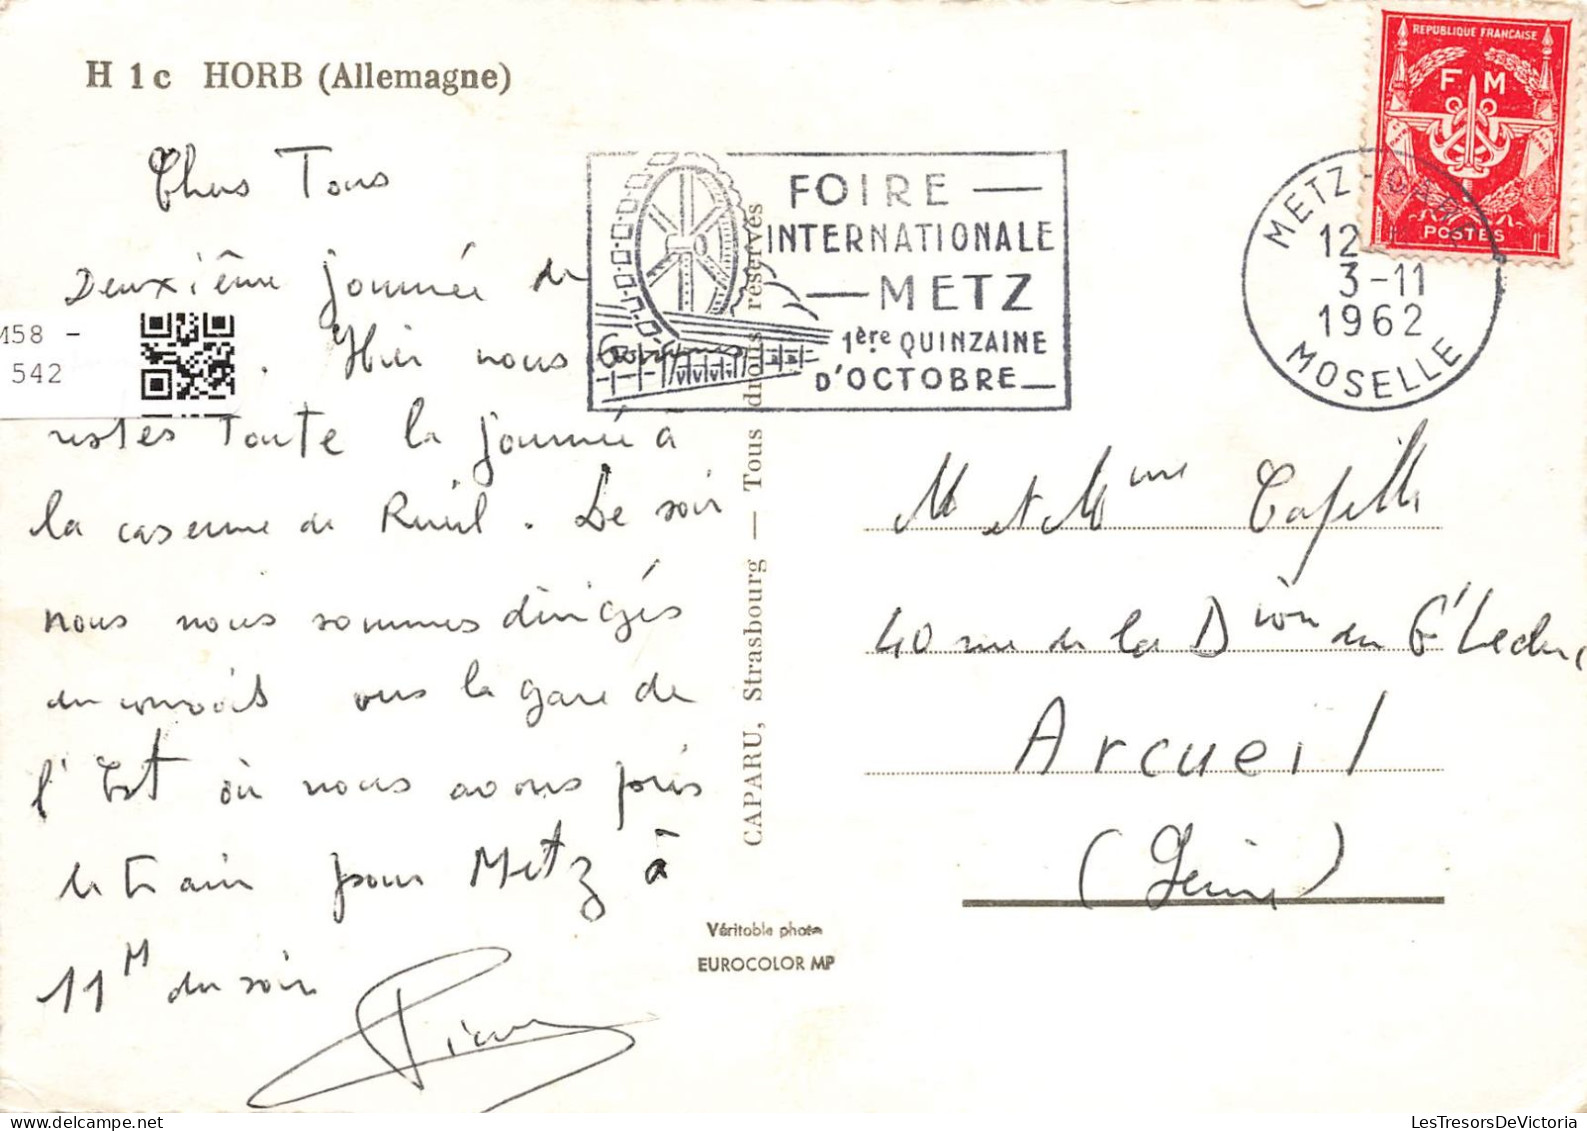 H 1c HORB (Allemagne)
Chers Tous
Deuxième journée de
. Hier nous sommes
restés Toute la journée à
la caserne de Rueil. Le soir
nous nous sommes dirigés
en convois vers la gare de
l'Est où nous avons pris
le train pour Metz à
11H du soir
Pierre
M58 -
542
FOIRE
INTERNATIONALE
METZ
1ère QUINZAINE
D'OCTOBRE
CAPARU, Strasbourg — Tous droits réservés
Véritable photo
EUROCOLOR MP
REPUBLIQUE FRANCAISE
F M
POSTES
METZ-GARE
12
3-11
1962
MOSELLE
M et Mme
40 rue de la Dion du Gl Leclerc
Arcueil
(Seine)
LesTresorsDeVictoria.com